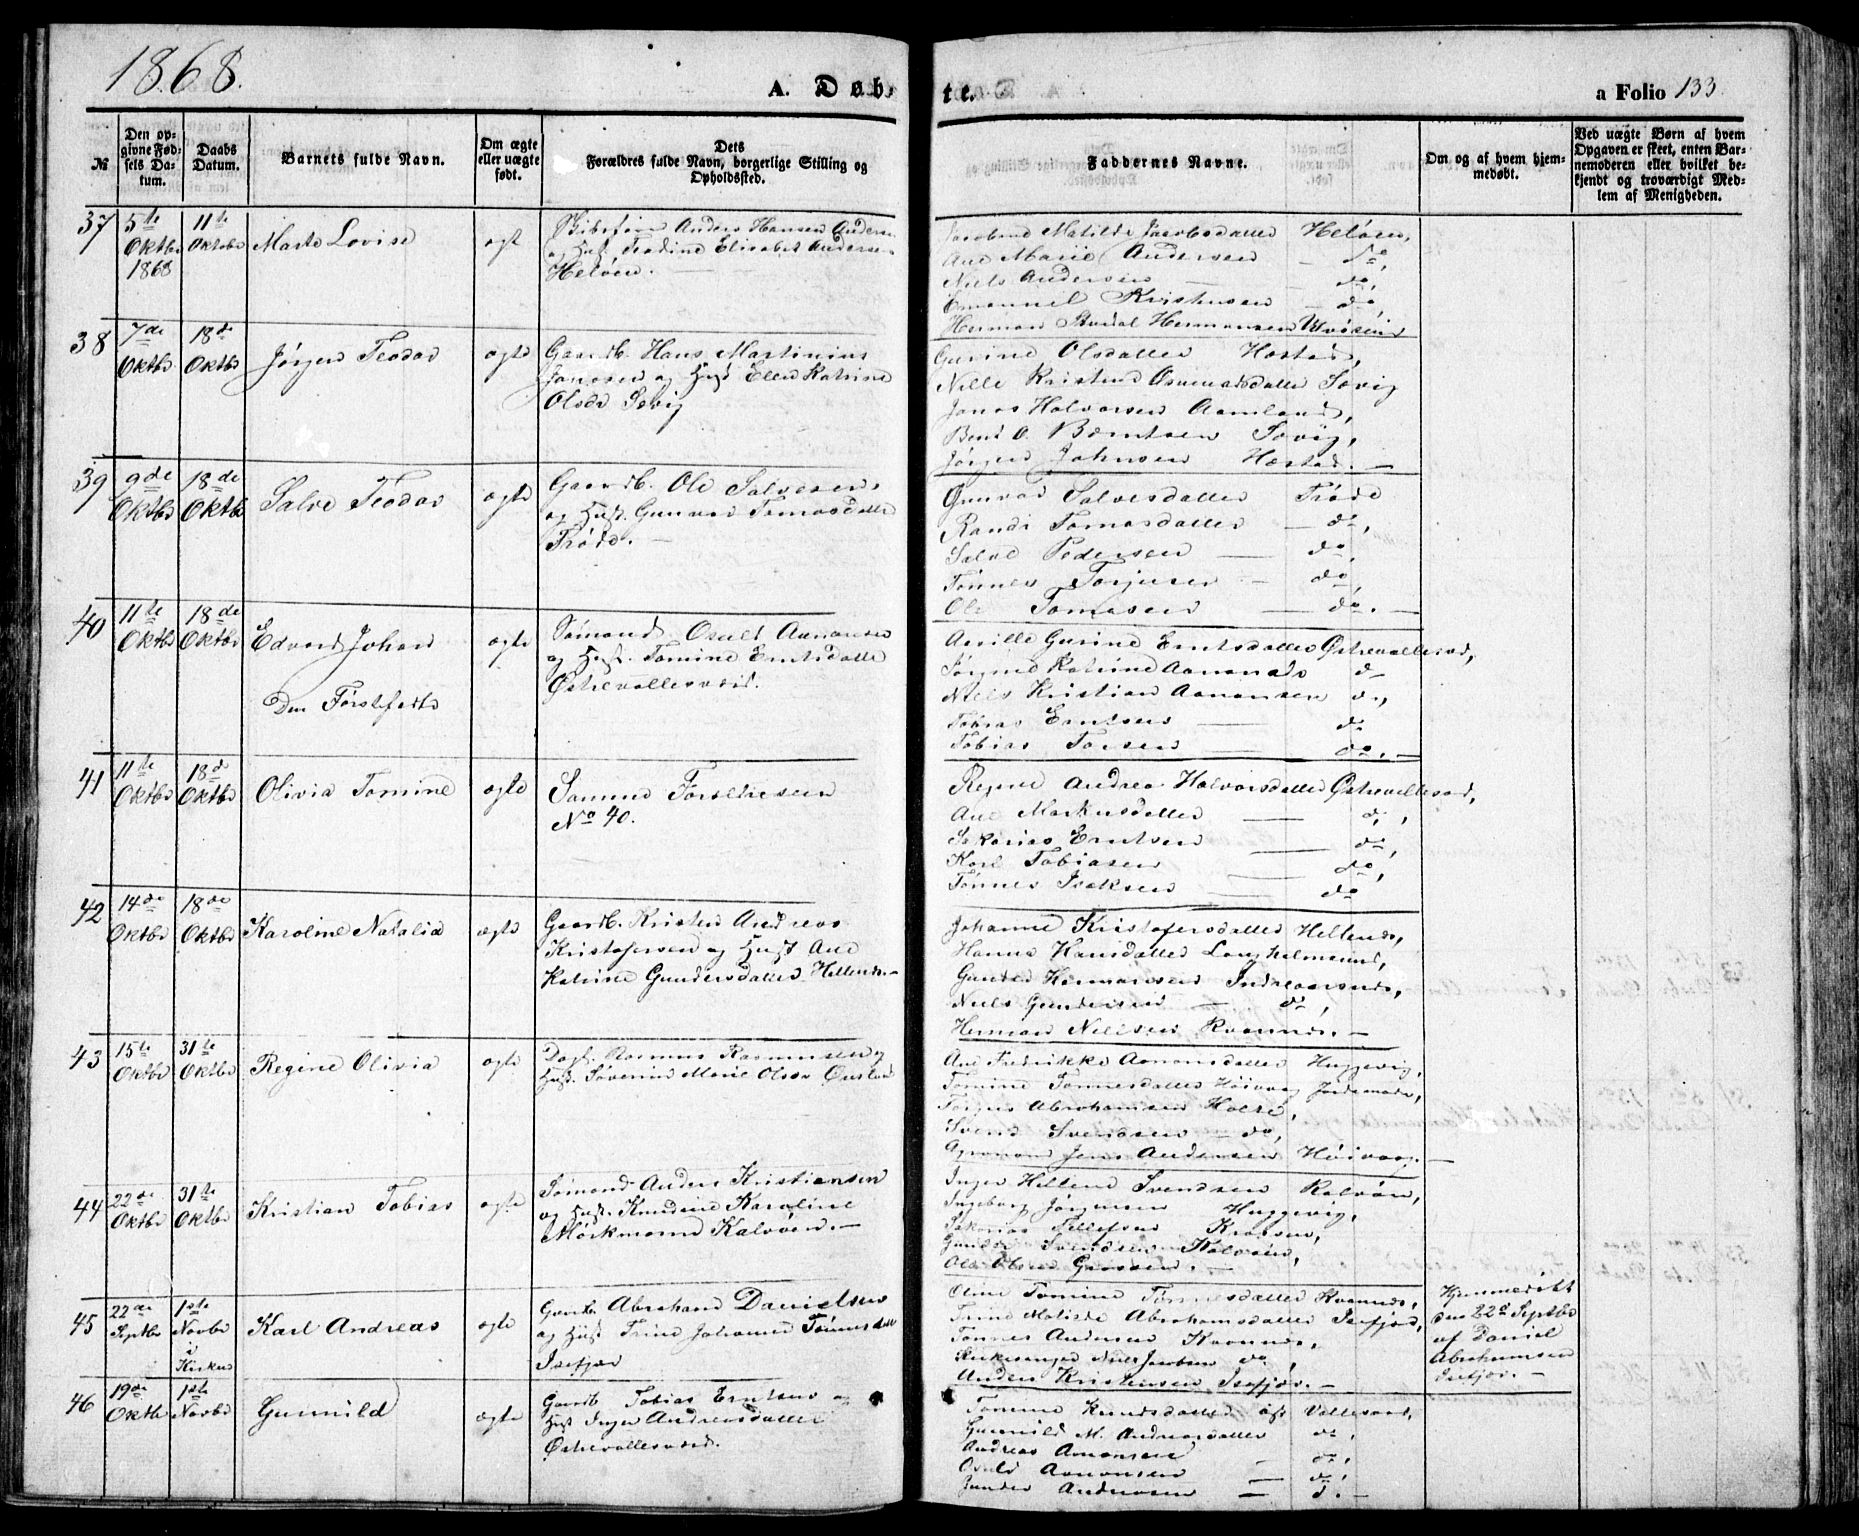 1868.
A. Døbte.
a Folio 133
№
Den opgivne Fødsels Datum.
Daabs Datum.
Barnets fulde Navn.
Om ægte eller uægte født.
Dets Forældres fulde Navn, borgerlige Stilling og Opholdssted.
Faddernes Navne.
Om og af hvem hjemmedøbt.
Ved uægte Børn af hvem Opgaven er skeet, enten Barnemoderen eller hvilket bekjendt og troværdigt Medlem af Menigheden.
37
5te Oktbr 1868
11te Oktobr
Marte Lovise
ægt
Anders Hansen Anders
og Hust Elisabet Anders
Heløen.
Matilde Jacobsdatter Heløen,
Ane Marie Andersen do,
Niels Andersen do,
Emanuel Kristensen do,
Herman Hermansen
38
7de Oktbr
18de Oktbr
Jørgen Teodor
ægte
Gaardb. Hans Martinius
Jonosen og Hust Ellen Katrine
Olsdr Sævig
Gurine Olsdatter Hæstad,
Nille Kristine Osmundsdatter Sævig
Jonas Halvorsen Aamland,
Bent O. Berntsen Sævig,
Jørgen Johnsen Hæstad.
39
9de Oktbr
18de Oktbr
Salve Teodor
ægte
Gaardb. Ole Salvesen
og Hust. Gunvor Tomasdatter
Trøde.
Gunvor Salvesdatter Trøde
Randi Tomasdatter do,
Salve Pedersen do,
Tønnes Torjusen do,
Ole Tomasen do.
40
11te Oktbr
18de Oktbr
Edvard Johan
Den Førstefødte
ægte
Sømand Osult Aanonsen
og Hust. Tomine Erntsdatter
Østrevallesverd.
Gurine Erntsdatter Østrevallesverd,
Jørgine Katrine Aanonsd do
Niels Kristian Aanonsen do,
Tobias Erntsen do
Tobias Torsen do.
41
11te Oktbr
18de Oktbr
Olivia Tomine
ægte
Samme Forældre som
No 40.
Regine Andrea Halvorsdatter Østrevallesverd,
Ane Markusdatter do,
Sakarias Erntsen do,
Karl Tobiasen do,
Tønnes Isaksen do
42
14de Oktbr
18de Oktbr
Karoline Natalia
ægte
Gaardb. Kristen Andreas
Kristofersen og Hust Ane
Katrine Gundersdatter Hellend.
Johanne Kristofersdatter Hellend,
Hanna Hansdatter Langholmsund,
Gunder Hermansen Indreaarsnes,
Niels Gundersen do,
Herman Nielsen Kvannes.
43
15te Oktbr
31te Oktbr
Regine Olivia
ægte
Dagl. Rasmus Rasmussen og
Hust. Severine Marie Olsdr
Ane Fredrikke Aanonsdatter Huggevig,
Tomine Tønnesdatter Høivaag Jordemoder,
Abrahamsen
Svend Svendsen do,
Jens Andersen Høivaag.
44
22de Oktbr
31te Oktbr
Kristian Tobias
ægte
Sømand Anders Kristiansen
og Hust. Knudine Karoline
Mørkmoine Kalvøen.
Inger Hellene Svendsen Kalvøen,
Ingeborg Jørgensen Huggevig,
Sakarias Tellefsen
Svendsen Kalvøen,
Ole Olsen
45
22de Septbr
1ste Novbr
i Kirken
Karl Andreas
ægte
Gaardb. Abraham Danielsen
og Hust Trine Johanne Tønnesdatter
Isefjær
Oline Tomine Tønnesdatter Kvannes,
Trine Matilde Abrahamsdatter Isefjær,
Tønnes Andersen Kvannes,
Kirkesanger Niels Jacobsen do,
Anders Kristensen Isefjær.
Hjemmedøbt
den 22d Septbr
af Daniel
Abrahamsen
Isefjær.
46
19de Oktbr
1ste Novbr
Gunnild
ægte
Gaardb Tobias Erntsen og
Hust Inger Andreasdatter
Østrevallesverd.
Tomine Knudsdatter Øst Vallesverd,
Gunnild M. Andreasdatter do,
Andreas Aanonsen do,
Osuld Aanonsen do,
Gunder Andersen d.